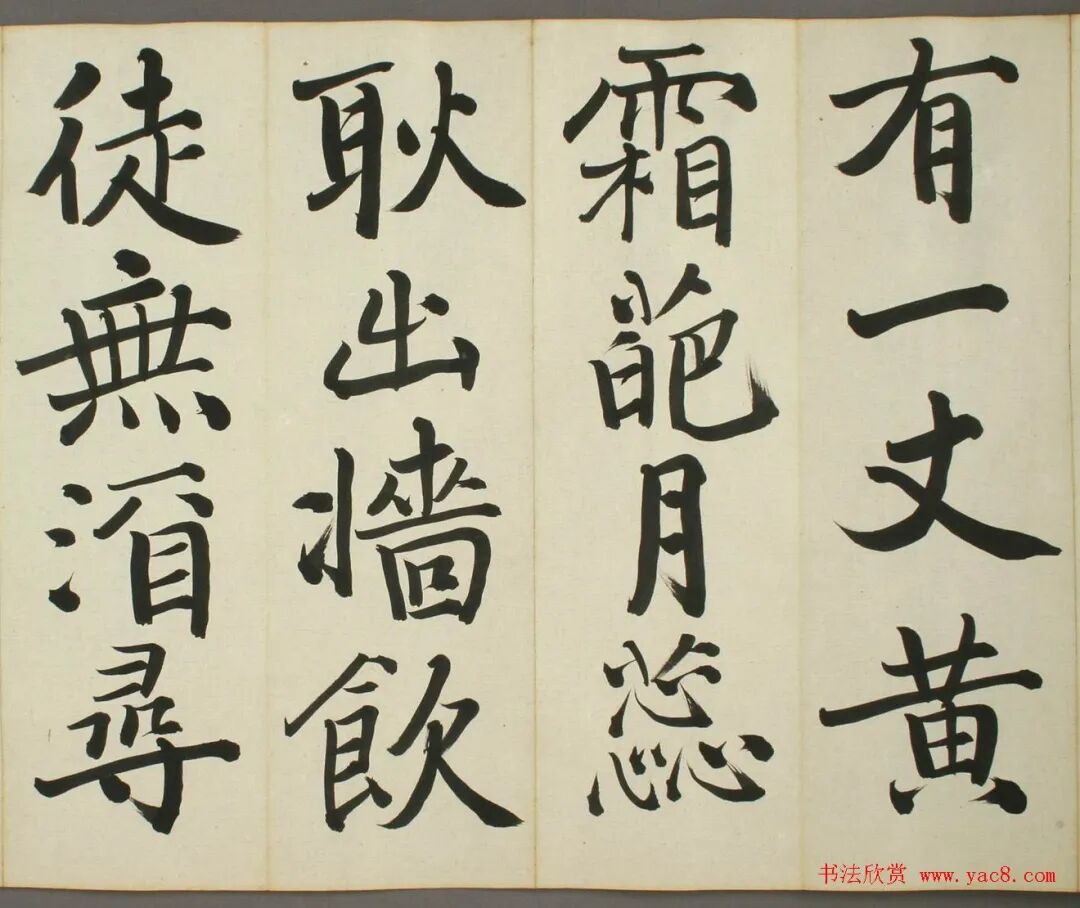 有一丈黄
霜葩月蕊
耿出牆飲
徒無須尋
书法欣赏 www.yac8.com